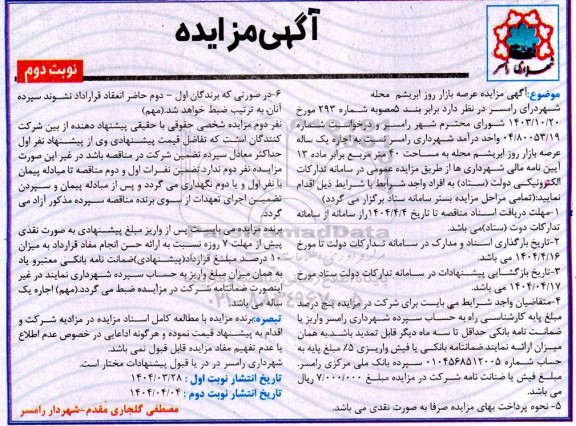 آگهی مزایده
نوبت دوم
شهرداری رامسر
موضوع:آگهی مزایده عرصه بازار روز ابریشم محله
شهرداری رامسر در نظر دارد برابر بند ۵مصوبه شماره ۲۹۳ مورخ
۱۴۰۳/۱۰/۲۰ شورای محترم شهر رامسر و درخواست شماره
۰۴/۸۰۰۵۳/۱۹ واحد درآمد شهرداری رامسر نسبت به اجاره یک ساله
عرصه بازار روز ابریشم محله به مساحت ۴۰۰ متر مربع برابر ماده ۱۳
آیین نامه مالی شهرداری ها از طریق مزایده عمومی در سامانه تدارکات
الکترونیکی دولت (ستاد) به افراد واجد شرایط با شرایط ذیل اقدام
نماید:(تمامی مراحل مزایده بستر سامانه ستاد برگزار می گردد)
۱-مهلت دریافت اسناد مناقصه تا تاریخ ۱۴۰۴/۴/۴از سامانه از سامانه
تدارکات دوت (ستاد)می باشد.
۲-تاریخ بارگذاری اسناد و مدارک در سامانه تدارکات دولت تا مورخ
۱۴۰۴/۴/۱۶ می باشد.
۳-تاریخ بازگشایی پیشنهادات در سامانه تدارکات دولت ستاد مورخ
۱۴۰۴/۰۴/۱۷ می باشد.
۴-متقاضیان واجد شرایط می بایست برای شرکت در مزایده پنج درصد
مبلغ پایه کارشناسی راه به حساب سپرده شهرداری رامسر واریز یا
ضمانت نامه بانکی حداقل تا سه ماه دیگر قابل تمدید باشد.به همان
میزان ارائه نمایند.ضمانتنامه بانکی یا فیش واریزی ۵٪ مبلغ پایه به
حساب شماره ۰۱۰۴۵۶۸۵۱۲۰۰۵ سپرده بانک ملی مرکزی رامسر.
مبلغ فیش یا ضمانت نامه شرکت در مزایده مبلغ ۷/۰۰۰/۰۰۰ ریال
می باشد.
۵- نحوه پرداخت بهای مزایده صرفا به صورت نقدی می باشد.
۶-در صورتی که برندگان اول - دوم حاضر انعقاد قراراداد نشوند سپرده
آنان به ترتیب ضبط خواهد شد.(مهم)
نفر دوم مزایده شخصی حقوقی با حقیقی پیشنهاد دهنده از بین شرکت
کنندگان است که تفاضل قیمت پیشنهادی وی از پیشنهاد نفر اول
حداکثر معادل سپرده تضمین شرکت در مناقصه باشد در غیر این صورت
مزایده نفر دوم ندارد.تضمین نفرات اول و دوم مناقصه تا مبادله پیمان
با نفر اول و یا دوم نگهداری می گردد و پس از مبادله پیمان و سپردن
تضمین اجرای تعهدات از سوی برنده مناقصه سپرده مذکور آزاد می
گردد.
برنده قانونی بایست پس از واریز مبلغ پیشنهادی به صورت نقدی
پیش از مهلت ۷ روزه نسبت به ارائه حسن انجام مفاد قرارداد به میزان
۱۰ درصد مبلغ قرارداد(پیشنهادی)ضمانت نامه بانکی معتبرو یاد
به همان میزان مبلغ واریز به حساب سپرده شهرداری نمایند در غیر
اینصورت ضمانتنامه شرکت در مزایده ضبط می گردد.(مهم) اجاره یک
ساله می باشد
تبصره:برنده مزایده با مطالعه کامل اسناد مزایده در مزادیه شرکت و
اقدام به پیشنهاد قیمت نموده و هرگونه ادعایی در خصوص عدم اطلاع
یا عدم تفهیم مفاد مزایده قابل قبول نمی باشد.
شهرداری رامسر در در یا قبول پیشنهادات مختار است.
تاریخ انتشار نوبت اول : ۱۴۰۴/۰۳/۲۸
تاریخ انتشار نوبت دوم : ۱۴۰۴/۰۴/۰۴
مصطفی گلجاری مقدم-شهردار رامسر